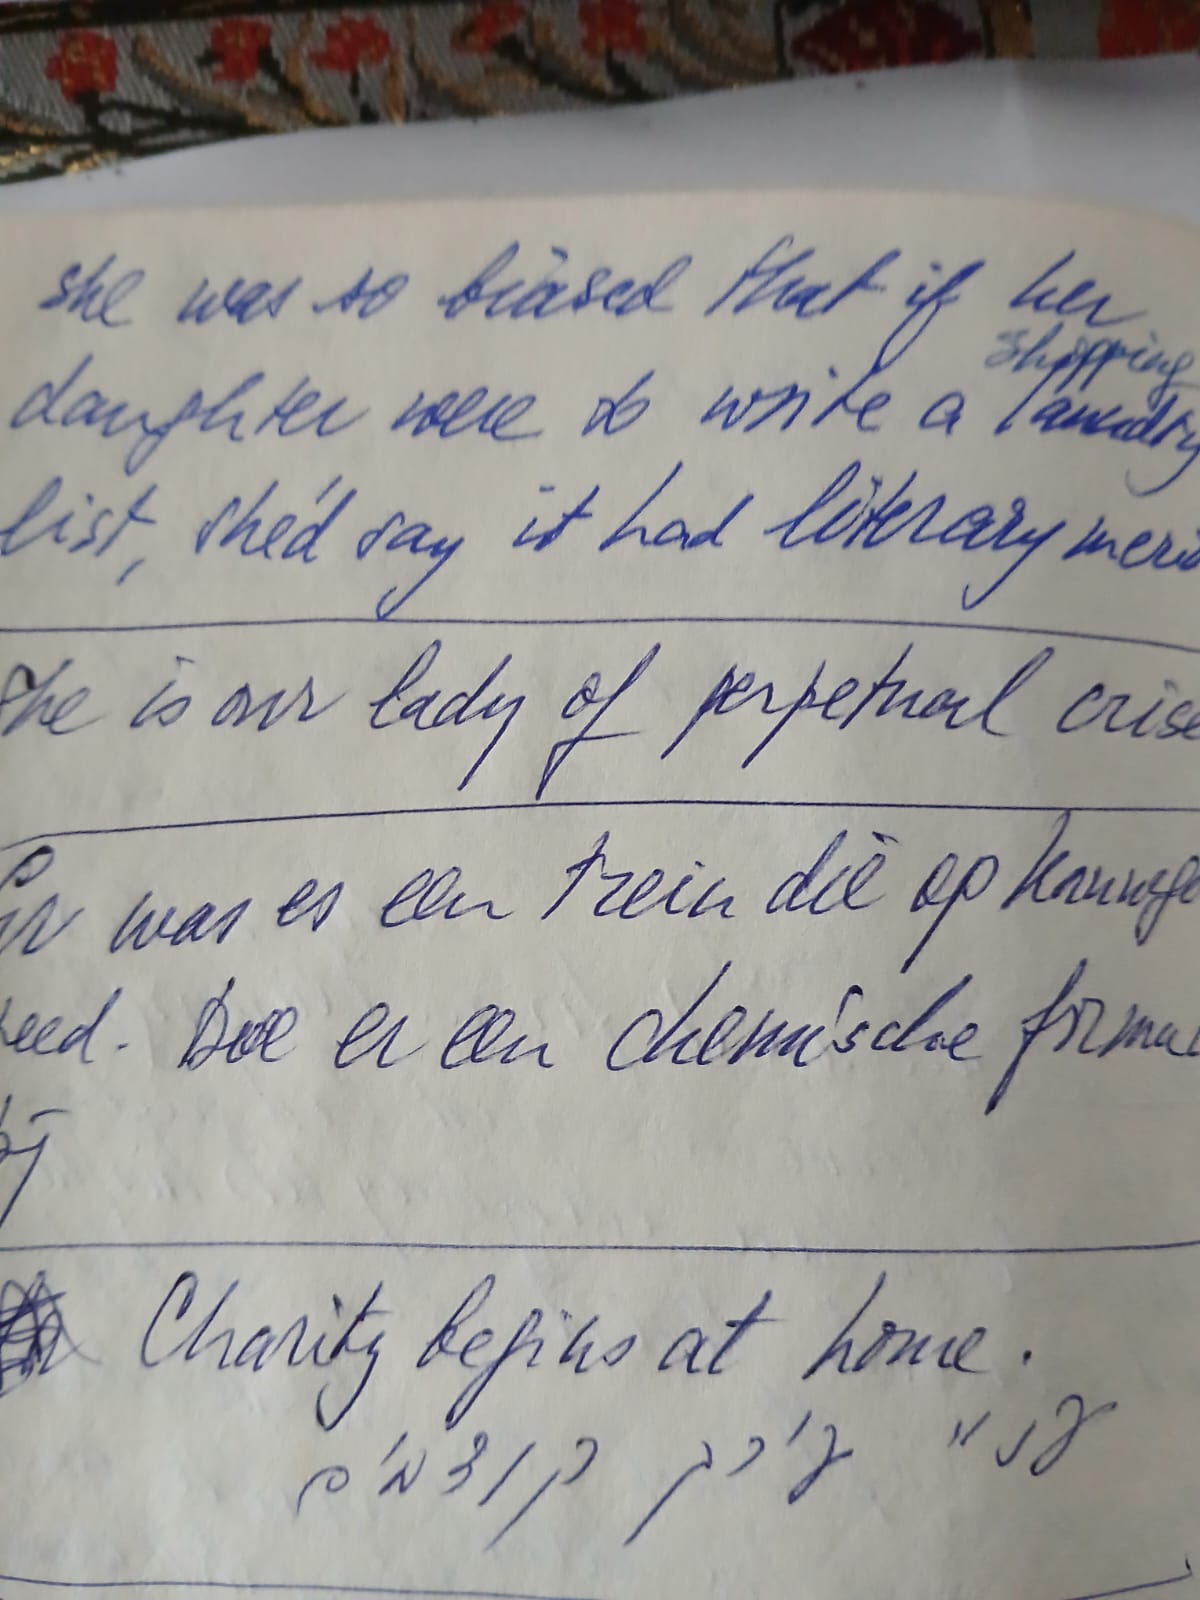 she was so biased that if her
shopping
daughter were to write a laundry
list, she'd say it had literary meri
She is our lady of perpetual crise
Er was es een trein die op kawge
reed. Doe er een chemische formu
bij
Charity begins at home.
עניי עירך קודמים